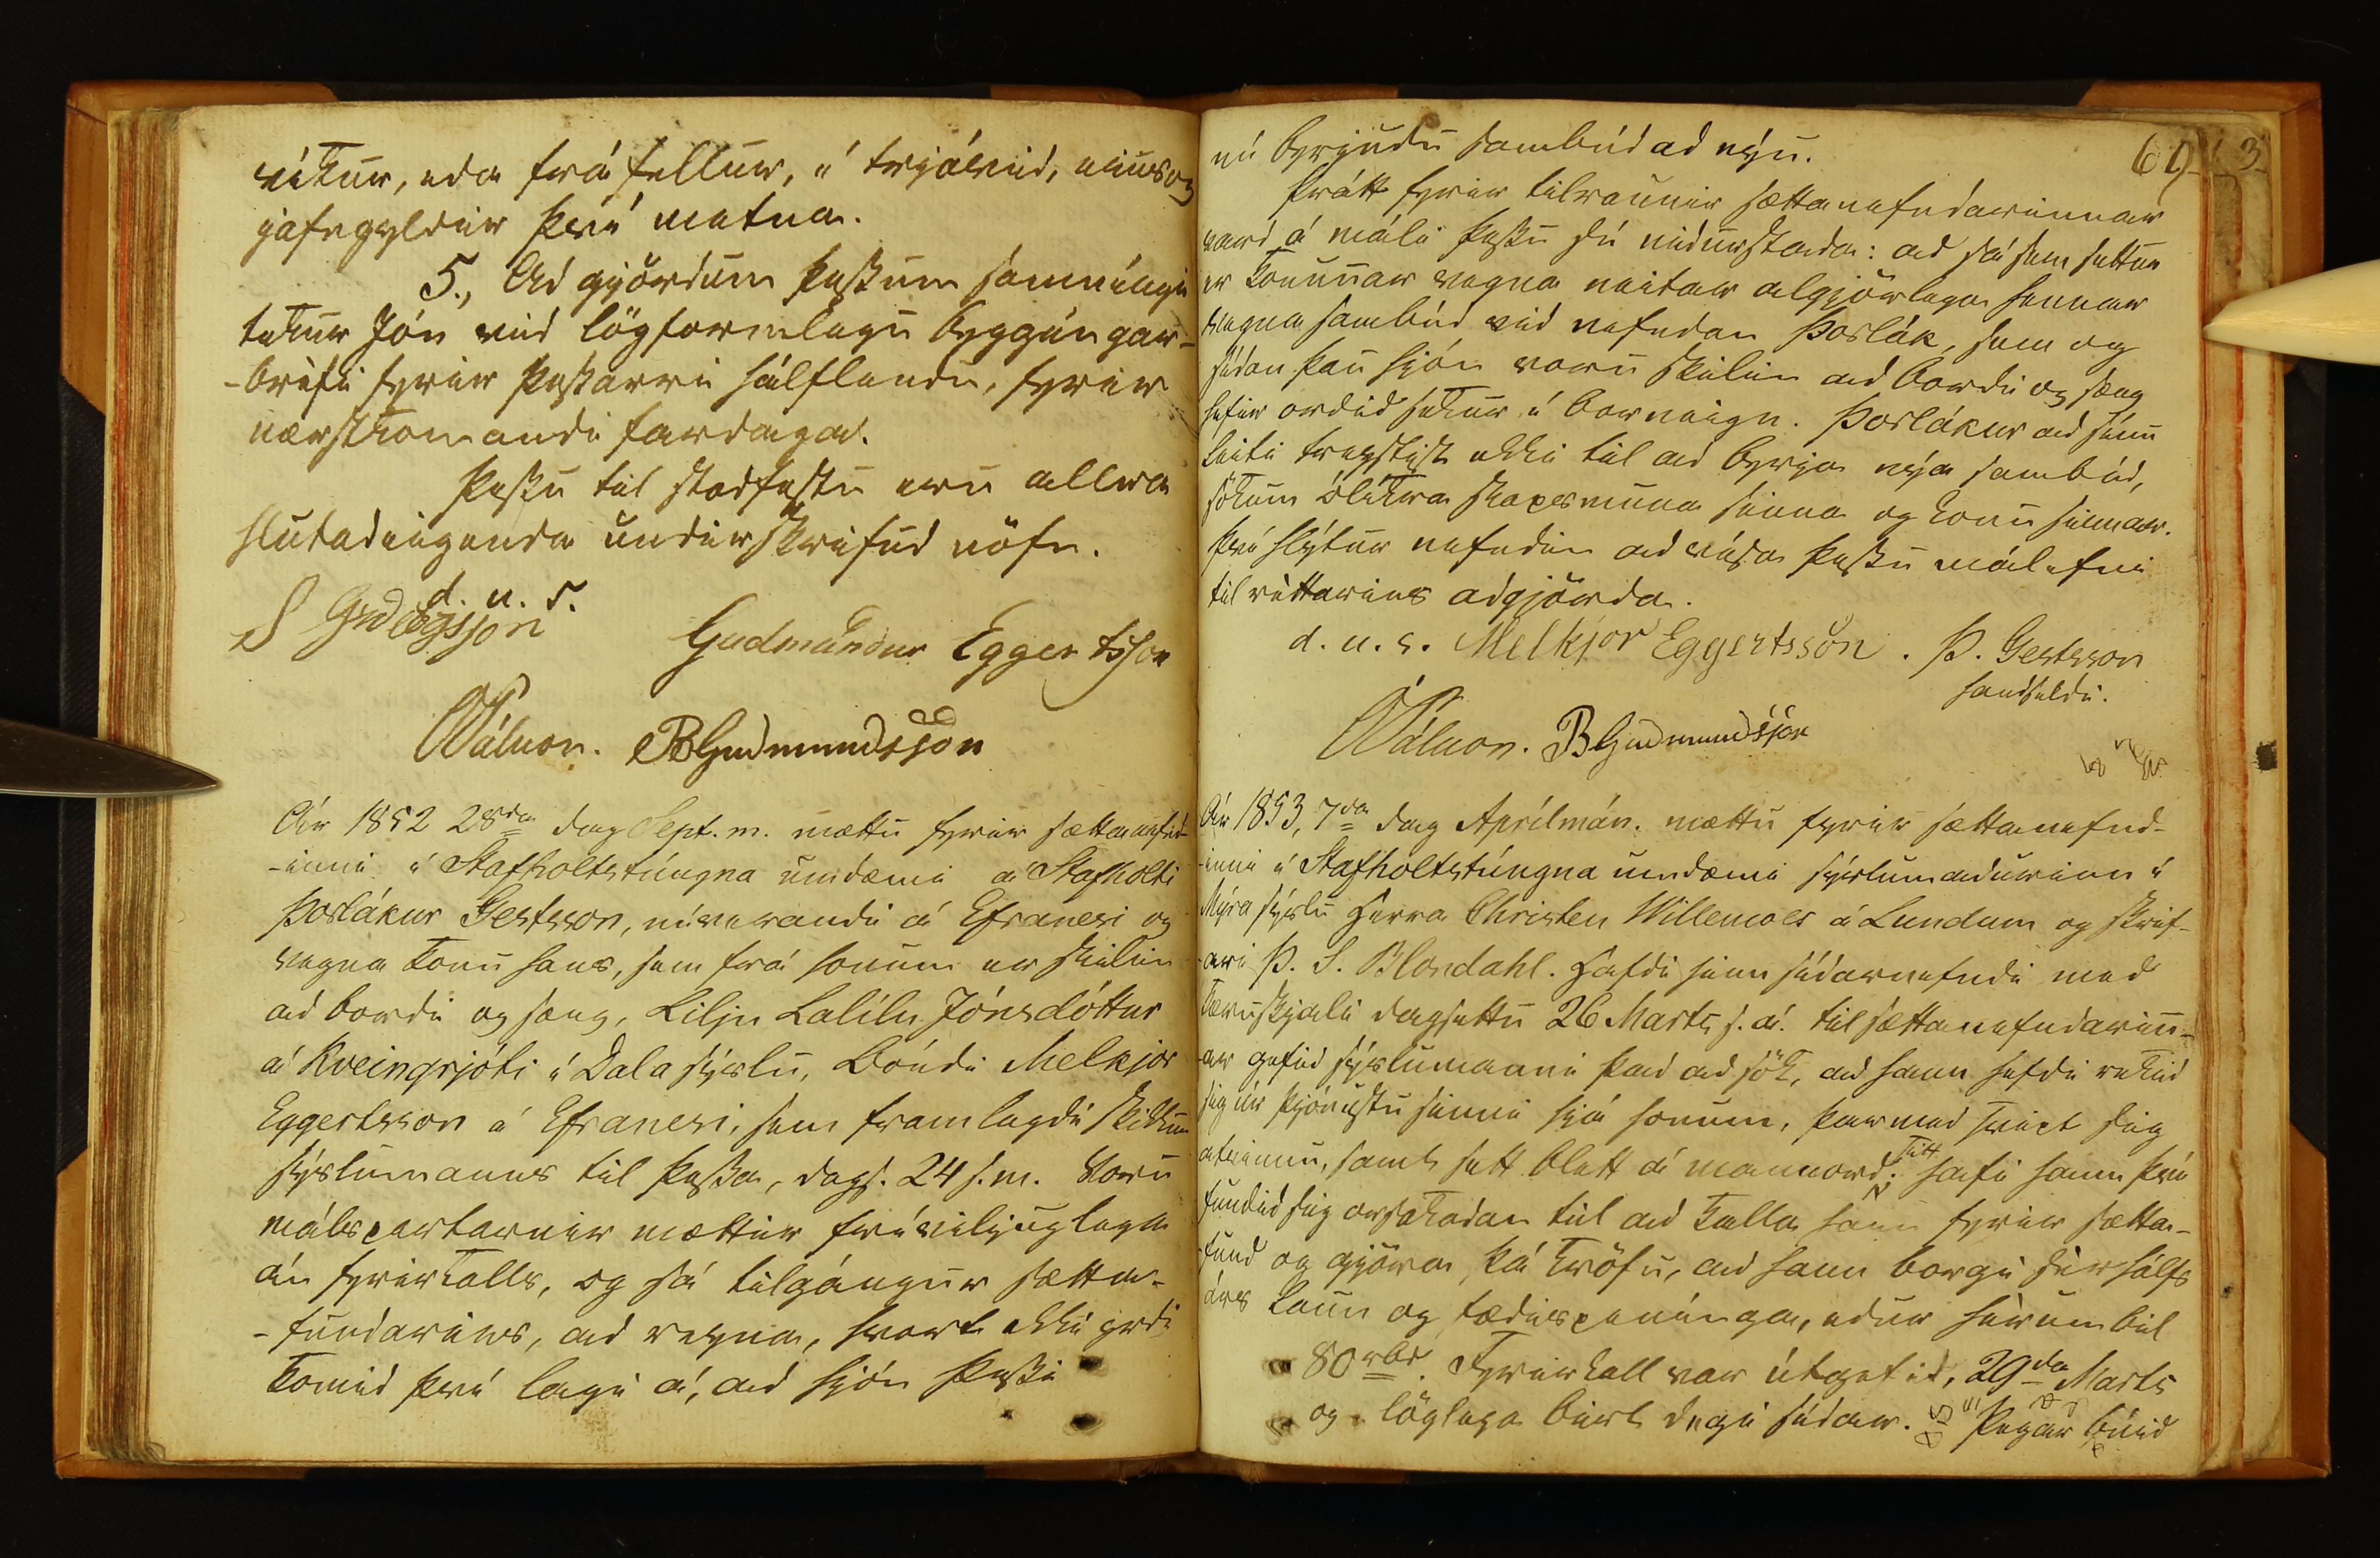 víkur, eda frá fellur, í trjávid, eins og
jafngyldir því metna.
5., Ad gjördum þessum samníngi
tekur Jón vid lögformlegu byggíngar-
-bréfi fyrir þessarri hálflendu, fyrir
næstkomandi fardaga.
Þessu til stadfestu eru allra
hlutadeigenda undirskrifud nöfn.
d. u. s.
Gudmundur Eggertsson
BGudmundsson
Ár 1852 28da dag Sept. m. mættu fyrir sættanefnd-
-inni í Stafholtstúngna umdæmi á Stafholti
Þorlákur Gestsson, núverandi á Efranesi og
vegna konu hans, sem frá honum er skilin
ad bordi og sæng, Lilju Lalílu Jónsdóttur
á Kveingrjóti í Dala sýslu, Bóndi Melkjor
Eggertsson á Efranesi, sem framlagdi skikkun
sýslumanns til þessa, dags. 24 s. m. Voru
málspartarnir mættir fríviljuglega
án fyrirkalls, og sá tilgángur sætta-
-fundarins, ad reyna, hvort ekki yrdi
komid því lagi á, ad hjón þessi
69
3
nú byrjudu sambúd ad nýu.
Þrátt fyrir tilraunir sættanefndarinnar
vard á máli þessu sú nidurstada: ad sá sem settur
er konunnar vegna neitar algjörlega hennar
vegna sambúd vid nefndan Þorlák, sem og
sídan þau hjón voru skilin ad bordi og sæng
hefir ordid sekur í barneign. Þorlákur ad sínu
leiti treystist ekki til ad byrja nýa sambúd,
sökum ólíkra skapsmuna sinna og konu sinnar.
Því hlýtur nefndin ad vísa þessu málefni
til réttarins adgjörda.
d. u. s. Melkjor Eggertsson. Þ. Gestsson
handsaldi.
BGudmundsson
Ár 1853, 7da dag Aprílmán. mættu fyrir sættanefnd-
-inni í Stafholtstúngna umdæmi sýslumadurinn í
Mýra sýslu Herra Christen Willemoes á Lundum og skrif-
-ari Þ. S. Blöndahl. Hafdi hinn sídarnefndi med
kæruskjali dagsettu 26 Marts s. á. til sættanefndarinn-
-ar gefid sýslumanni þad ad sök, ad hann hefdi rekid
sig úr þjónustu sinni hjá honum, þarmed svipt sig
atvinnu, samt sett blett á mannord sitt; hafi hann því
fundid sig orsakadan til ad kalla hann fyrir sætta-
-fund og gjöra þá kröfu, ad hann borgi sér hálfs
árs laun og fædispenínga, edur hérumbil
80 rbd. Fyrirkall var útgefid, 29da Marts
og löglega birt degi sídar. Þegar búid